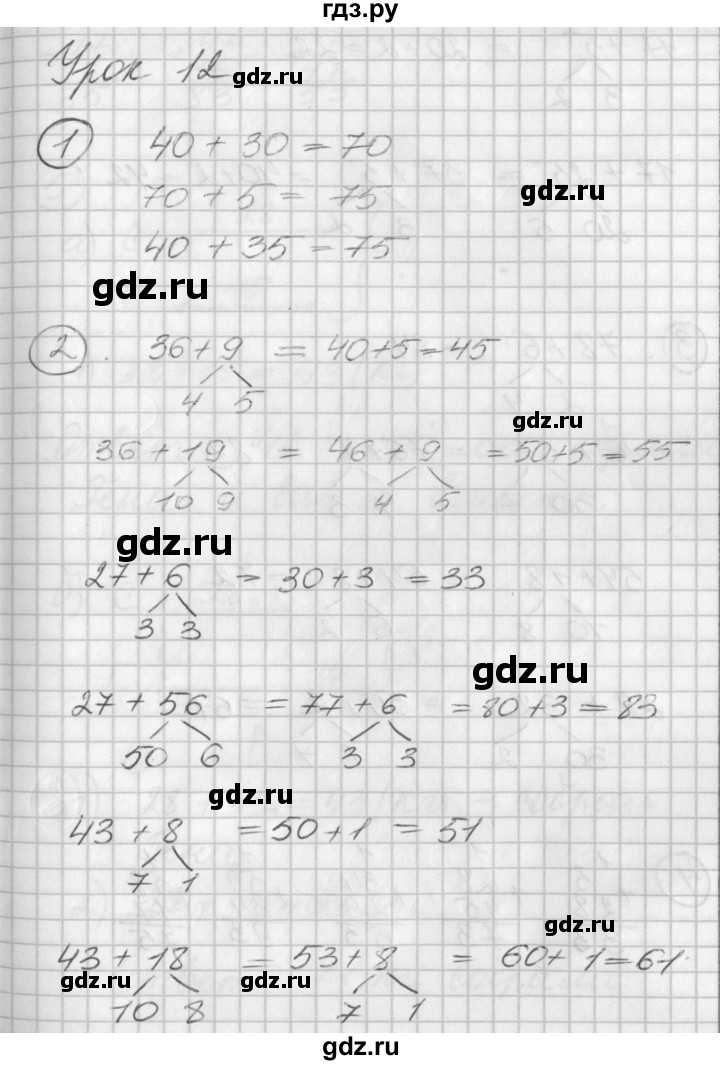 гдз.ру
Урок 12
gdz.ru
1 40 + 30 = 70
70 + 5 = 75
gdz.ru
40 + 35 = 75
gdz.ru
2. 36 + 9 = 40 + 5 = 45
4 5
gdz.ru
36 + 19 = 46 + 9 = 50 + 5 = 55
10 9 4 5
gdz.ru
27 + 6 = 30 + 3 = 33
3 3
gdz.ru
27 + 56 = 77 + 6 = 80 + 3 = 83
50 6 3 3
gdz.ru
43 + 8 = 50 + 1 = 51
7 1
gdz.ru
43 + 18 = 53 + 8 = 60 + 1 = 61
gdz.ru gdz.ru
10 8 7 1
gdz.ru